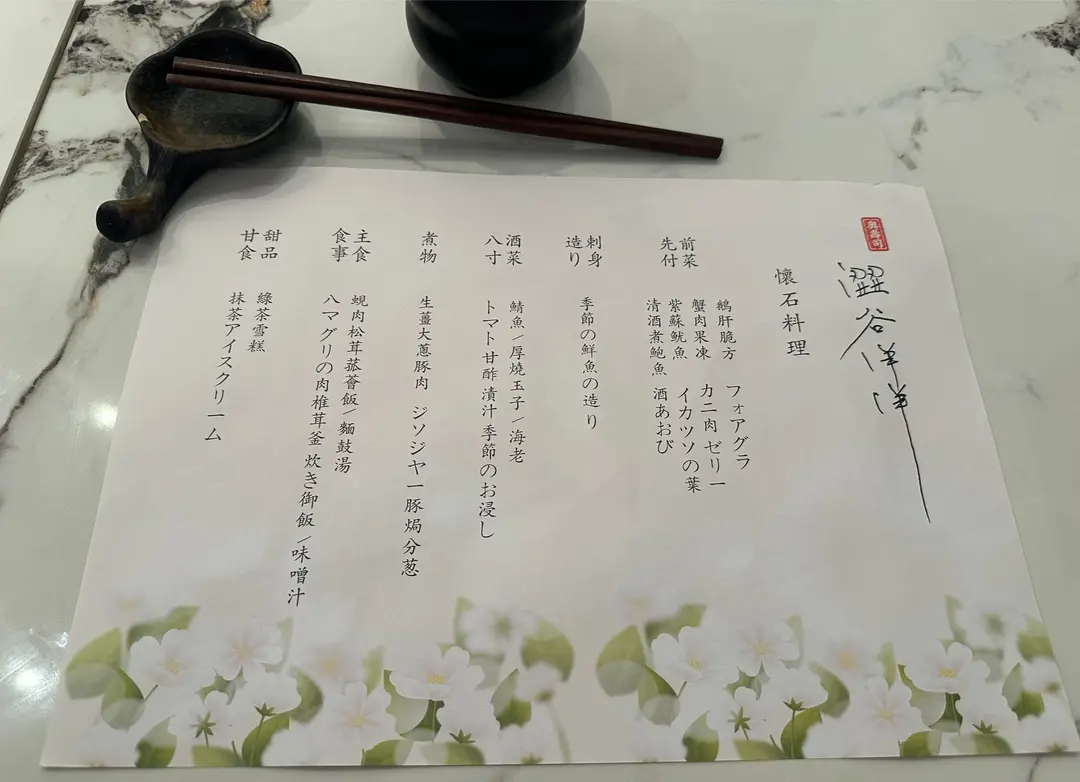 奥壽司
澀谷洋洋
懷石料理
前菜
先付
鵝肝脆方 フォアグラ
蟹肉果凍 カニ肉ゼリー
紫蘇魷魚 イカツソの葉
清酒煮鮑魚 酒あおび
刺身
造り
季節の鮮魚の造り
酒菜
八寸
鯖魚/厚燒玉子/海老
トマト甘酢漬汁季節のお浸し
煮物
生薑大蔥豚肉 ジソジヤー豚焗分葱
主食
食事
蜆肉松茸菇薈飯/麵鼓湯
ハマグリの肉椎茸釜炊き御飯/味噌汁
甜品
甘食
綠茶雪糕
抹茶アイスクリーム